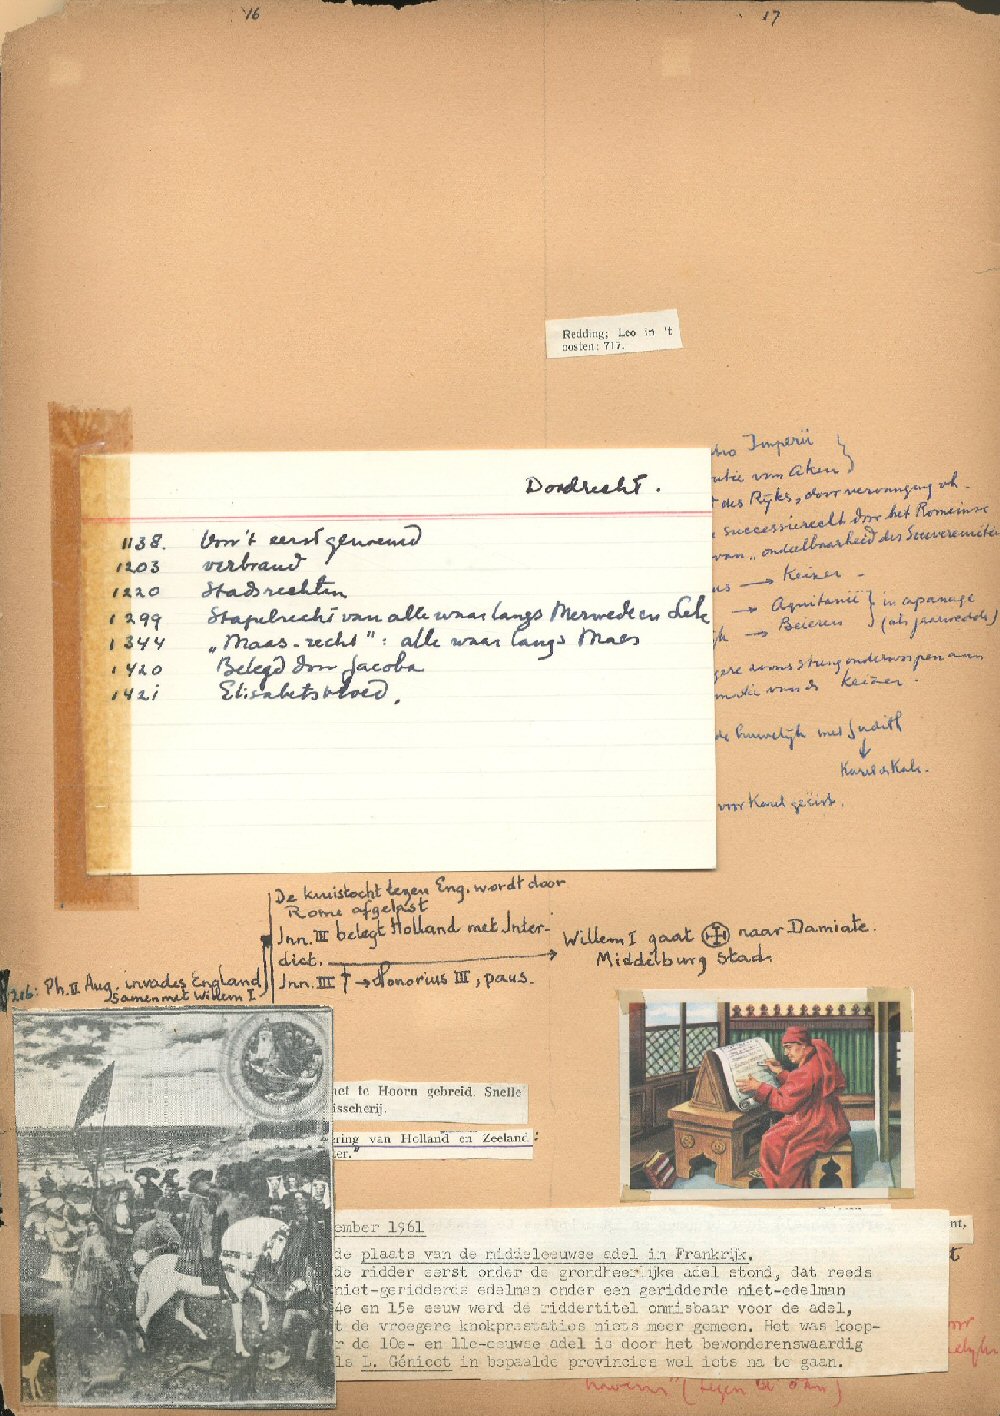 16
17
Redding; Leo in 't
oosten: 717.
Dordrecht.
1138. Voor 't eerst genoemd
1203 verbrand
1220 Stadsrechten
1299 Stapelrecht van alle waar langs Merwede en Lek
1344 „Maas-recht": alle waar langs Maas
1420 Belegd door Jacoba
1421 Elisabetsvloed.
Imperii
van Aken
des Rijks, door vervanging v.h.
successierecht door het Romeinse
van „ondeelbaarheid des Souvereiniteit
→ Keizer
→ Aquitanië } in apanage
→ Beieren } (als jaarwedde)
streng onderworpen aan
van de Keizer.
huwelijk met Judith
↓
Karel de Kale.
voor Karel geëist.
De kruistocht tegen Eng. wordt door
Rome afgelast
Inn. III belegt Holland met Inter-
dict. → Willem I gaat naar Damiate.
Middelburg Stad.
Inn. III † → Honorius III, paus.
Ph. II Aug. invades England
samen met Willem I
net te Hoorn gebreid. Snelle
isscherij.
ering van Holland en Zeeland
er."
ember 1961
de plaats van de middeleeuwse adel in Frankrijk.
de ridder eerst onder de grondheerlijke adel stond, dat reeds
niet-geridderde edelman onder een geridderde niet-edelman
4e en 15e eeuw werd de riddertitel onmisbaar voor de adel,
t de vroegere knokprestaties niets meer gemeen. Het was koop-
r de 10e- en 11e-eeuwse adel is door het bewonderenswaardig
ls L. Génicot in bepaalde provincies wel iets na te gaan.
nt.